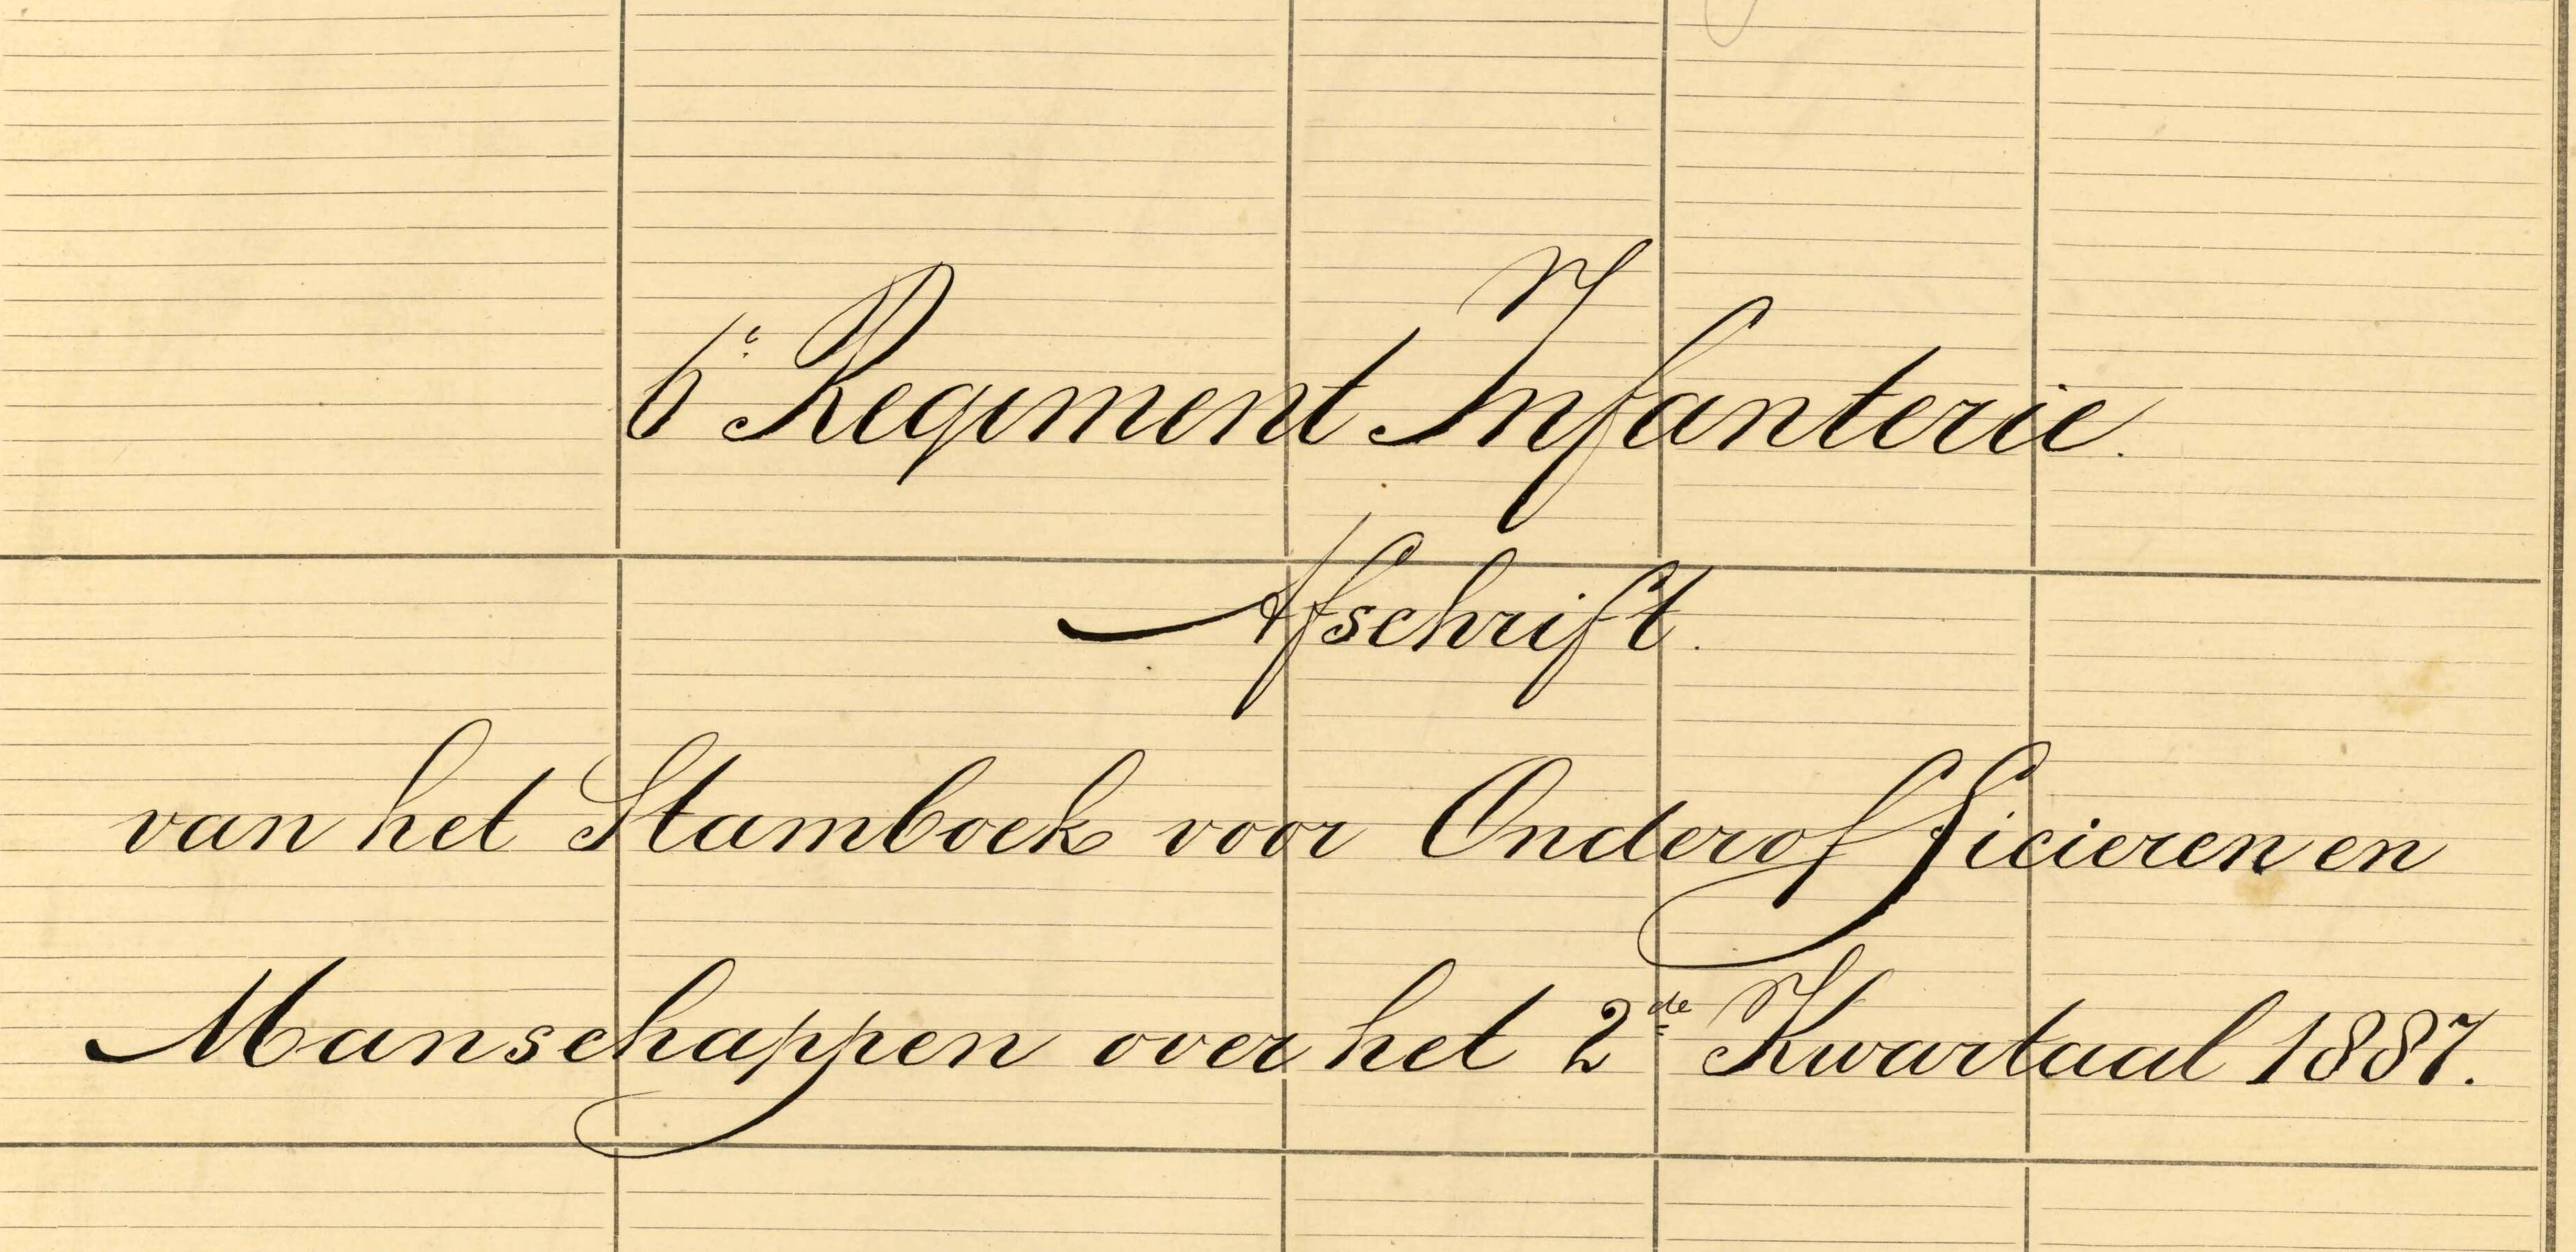 6e Regiment Infanterie.
Afschrift.
van het Stamboek voor Onderofficieren en
Manschappen over het 2de Kwartaal 1887.